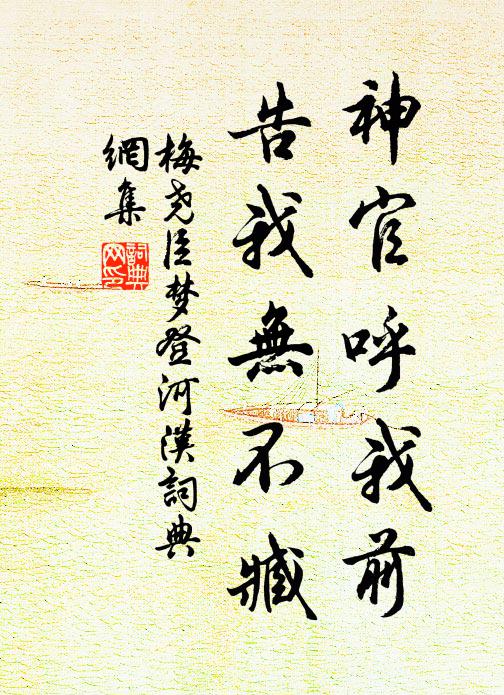 神官呼我前
告我無不臧
梅尧臣梦登河漢詞典
網集
詞典
网印